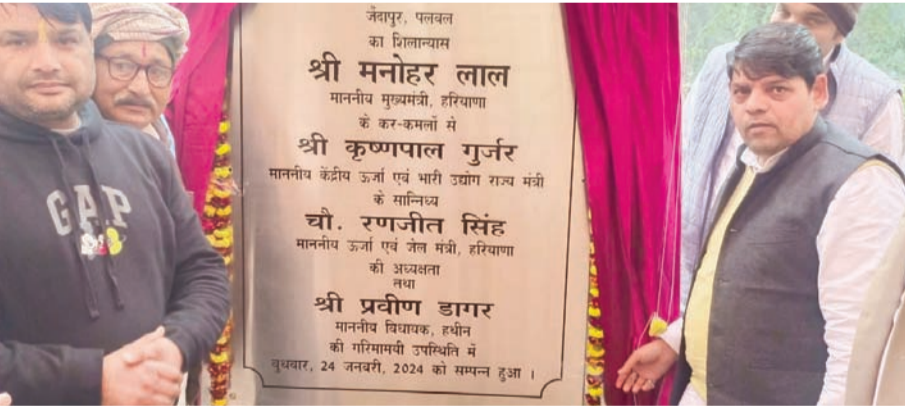 जैंदापुर, पलवल
का शिलान्यास
श्री मनोहर लाल
माननीय मुख्यमंत्री, हरियाणा
के कर-कमलों से
श्री कृष्णपाल गुर्जर
माननीय केंद्रीय ऊर्जा एवं भारी उद्योग राज्य मंत्री
के सान्निध्य
चौ. रणजीत सिंह
माननीय ऊर्जा एवं जेल मंत्री, हरियाणा
की अध्यक्षता
तथा
श्री प्रवीण डागर
माननीय विधायक, हथीन
की गरिमामयी उपस्थिति में
बुधवार, 24 जनवरी, 2024 को सम्पन्न हुआ ।
GAP